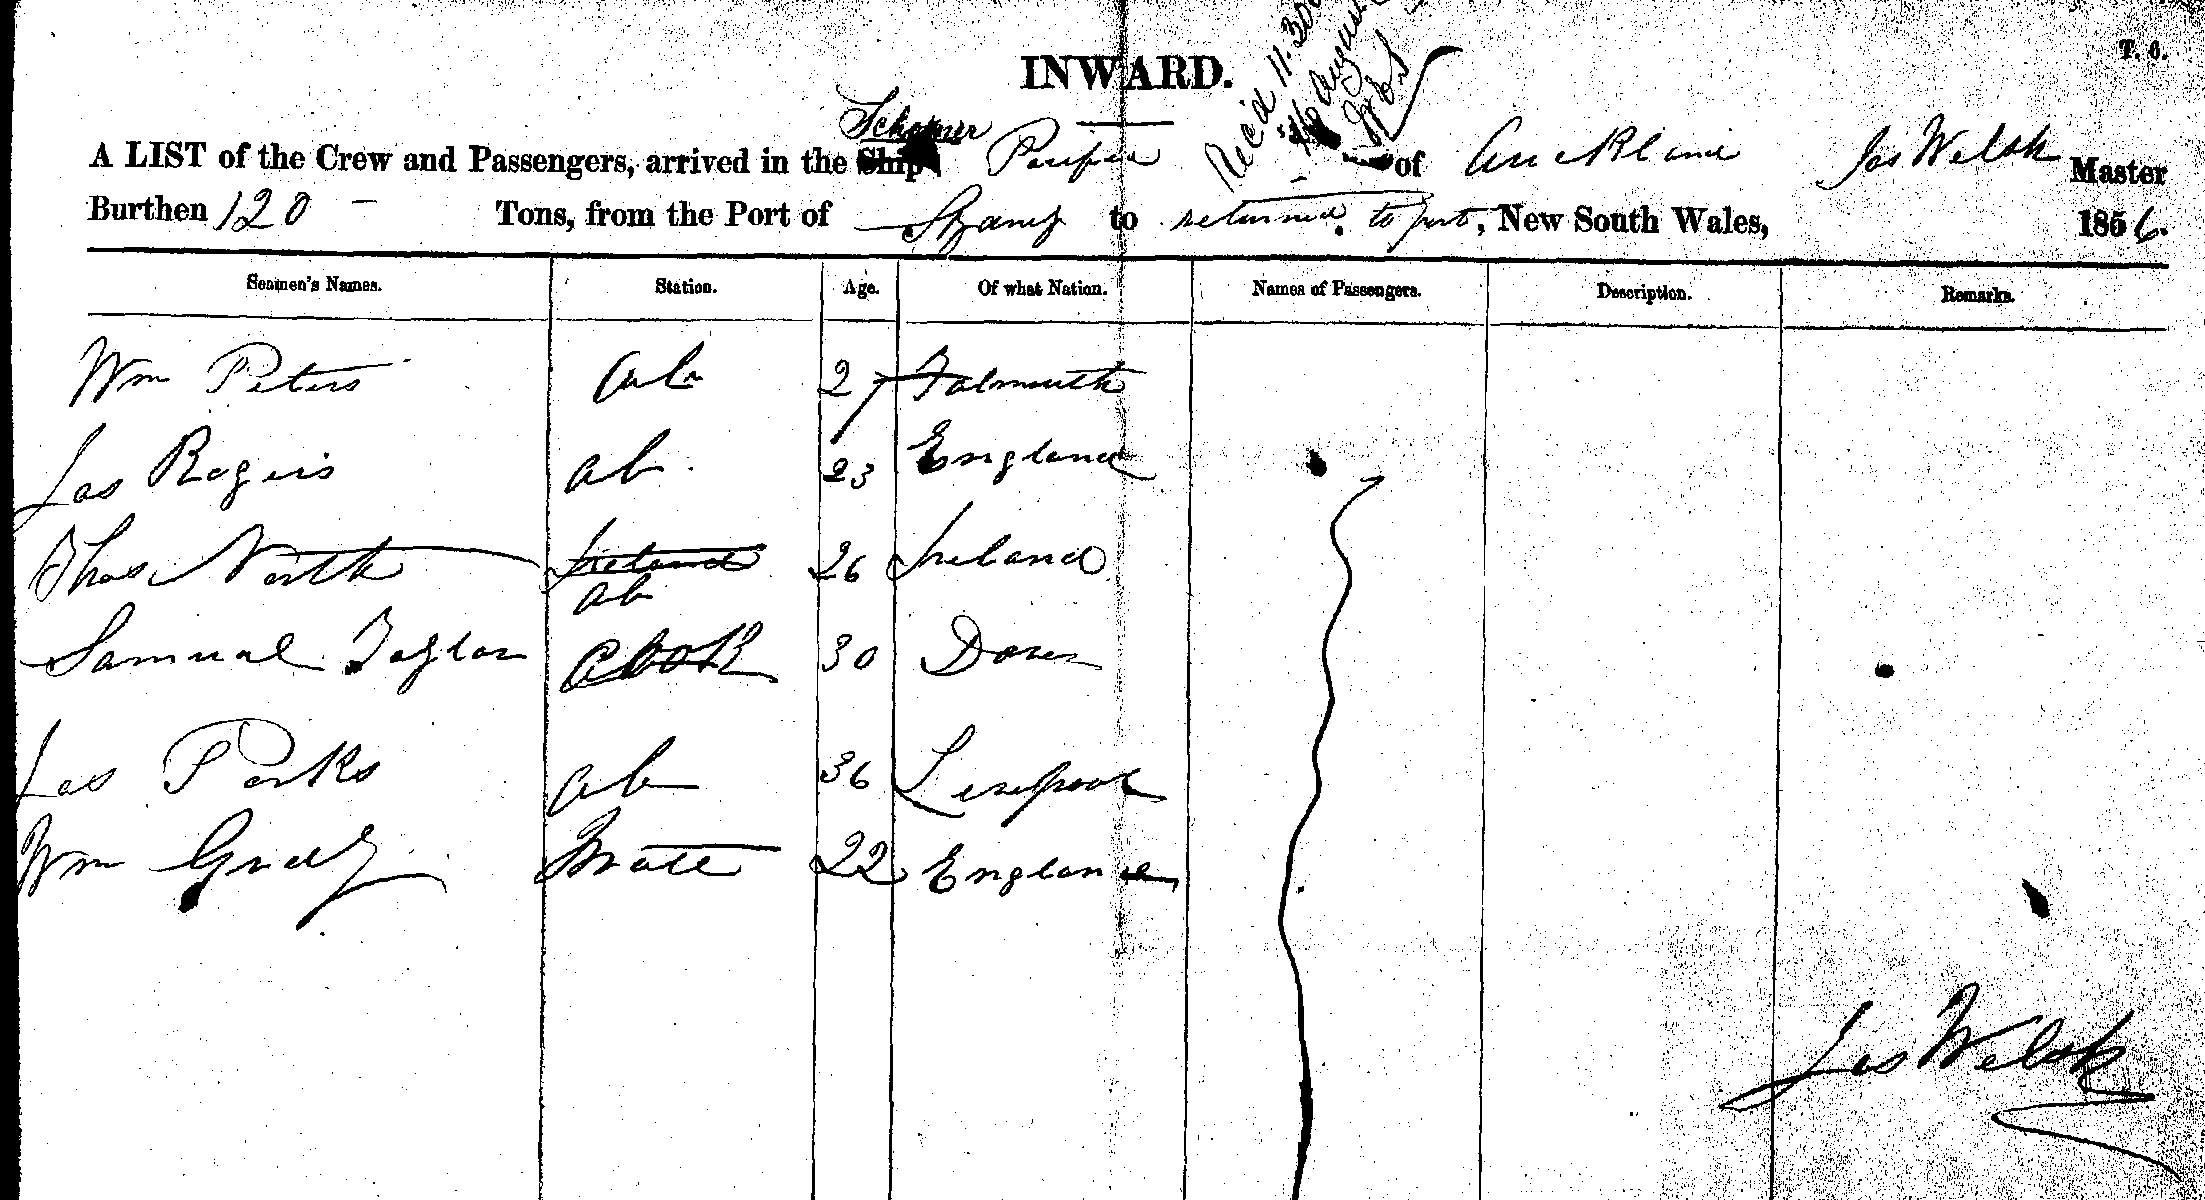 INWARD.
T. 6.
Recd 11.30
16 August
Schooner
A LIST of the Crew and Passengers, arrived in the Ship of Auckland Jas Welsh Master
Burthen 120 - Tons, from the Port of Sydney to returned to port, New South Wales, 1856.
Seamen's Names. Station. Age. Of what Nation. Names of Passengers. Description. Remarks.
Wm Peters ab 27 Falmouth
Jas Rogers ab 23 England
Thos North Ireland 26 Ireland
ab
Samual Taylor Cook 30 Dover
Jas Parks ab 36 Liverpool
Wm Mate 22 England
Jas Welsh